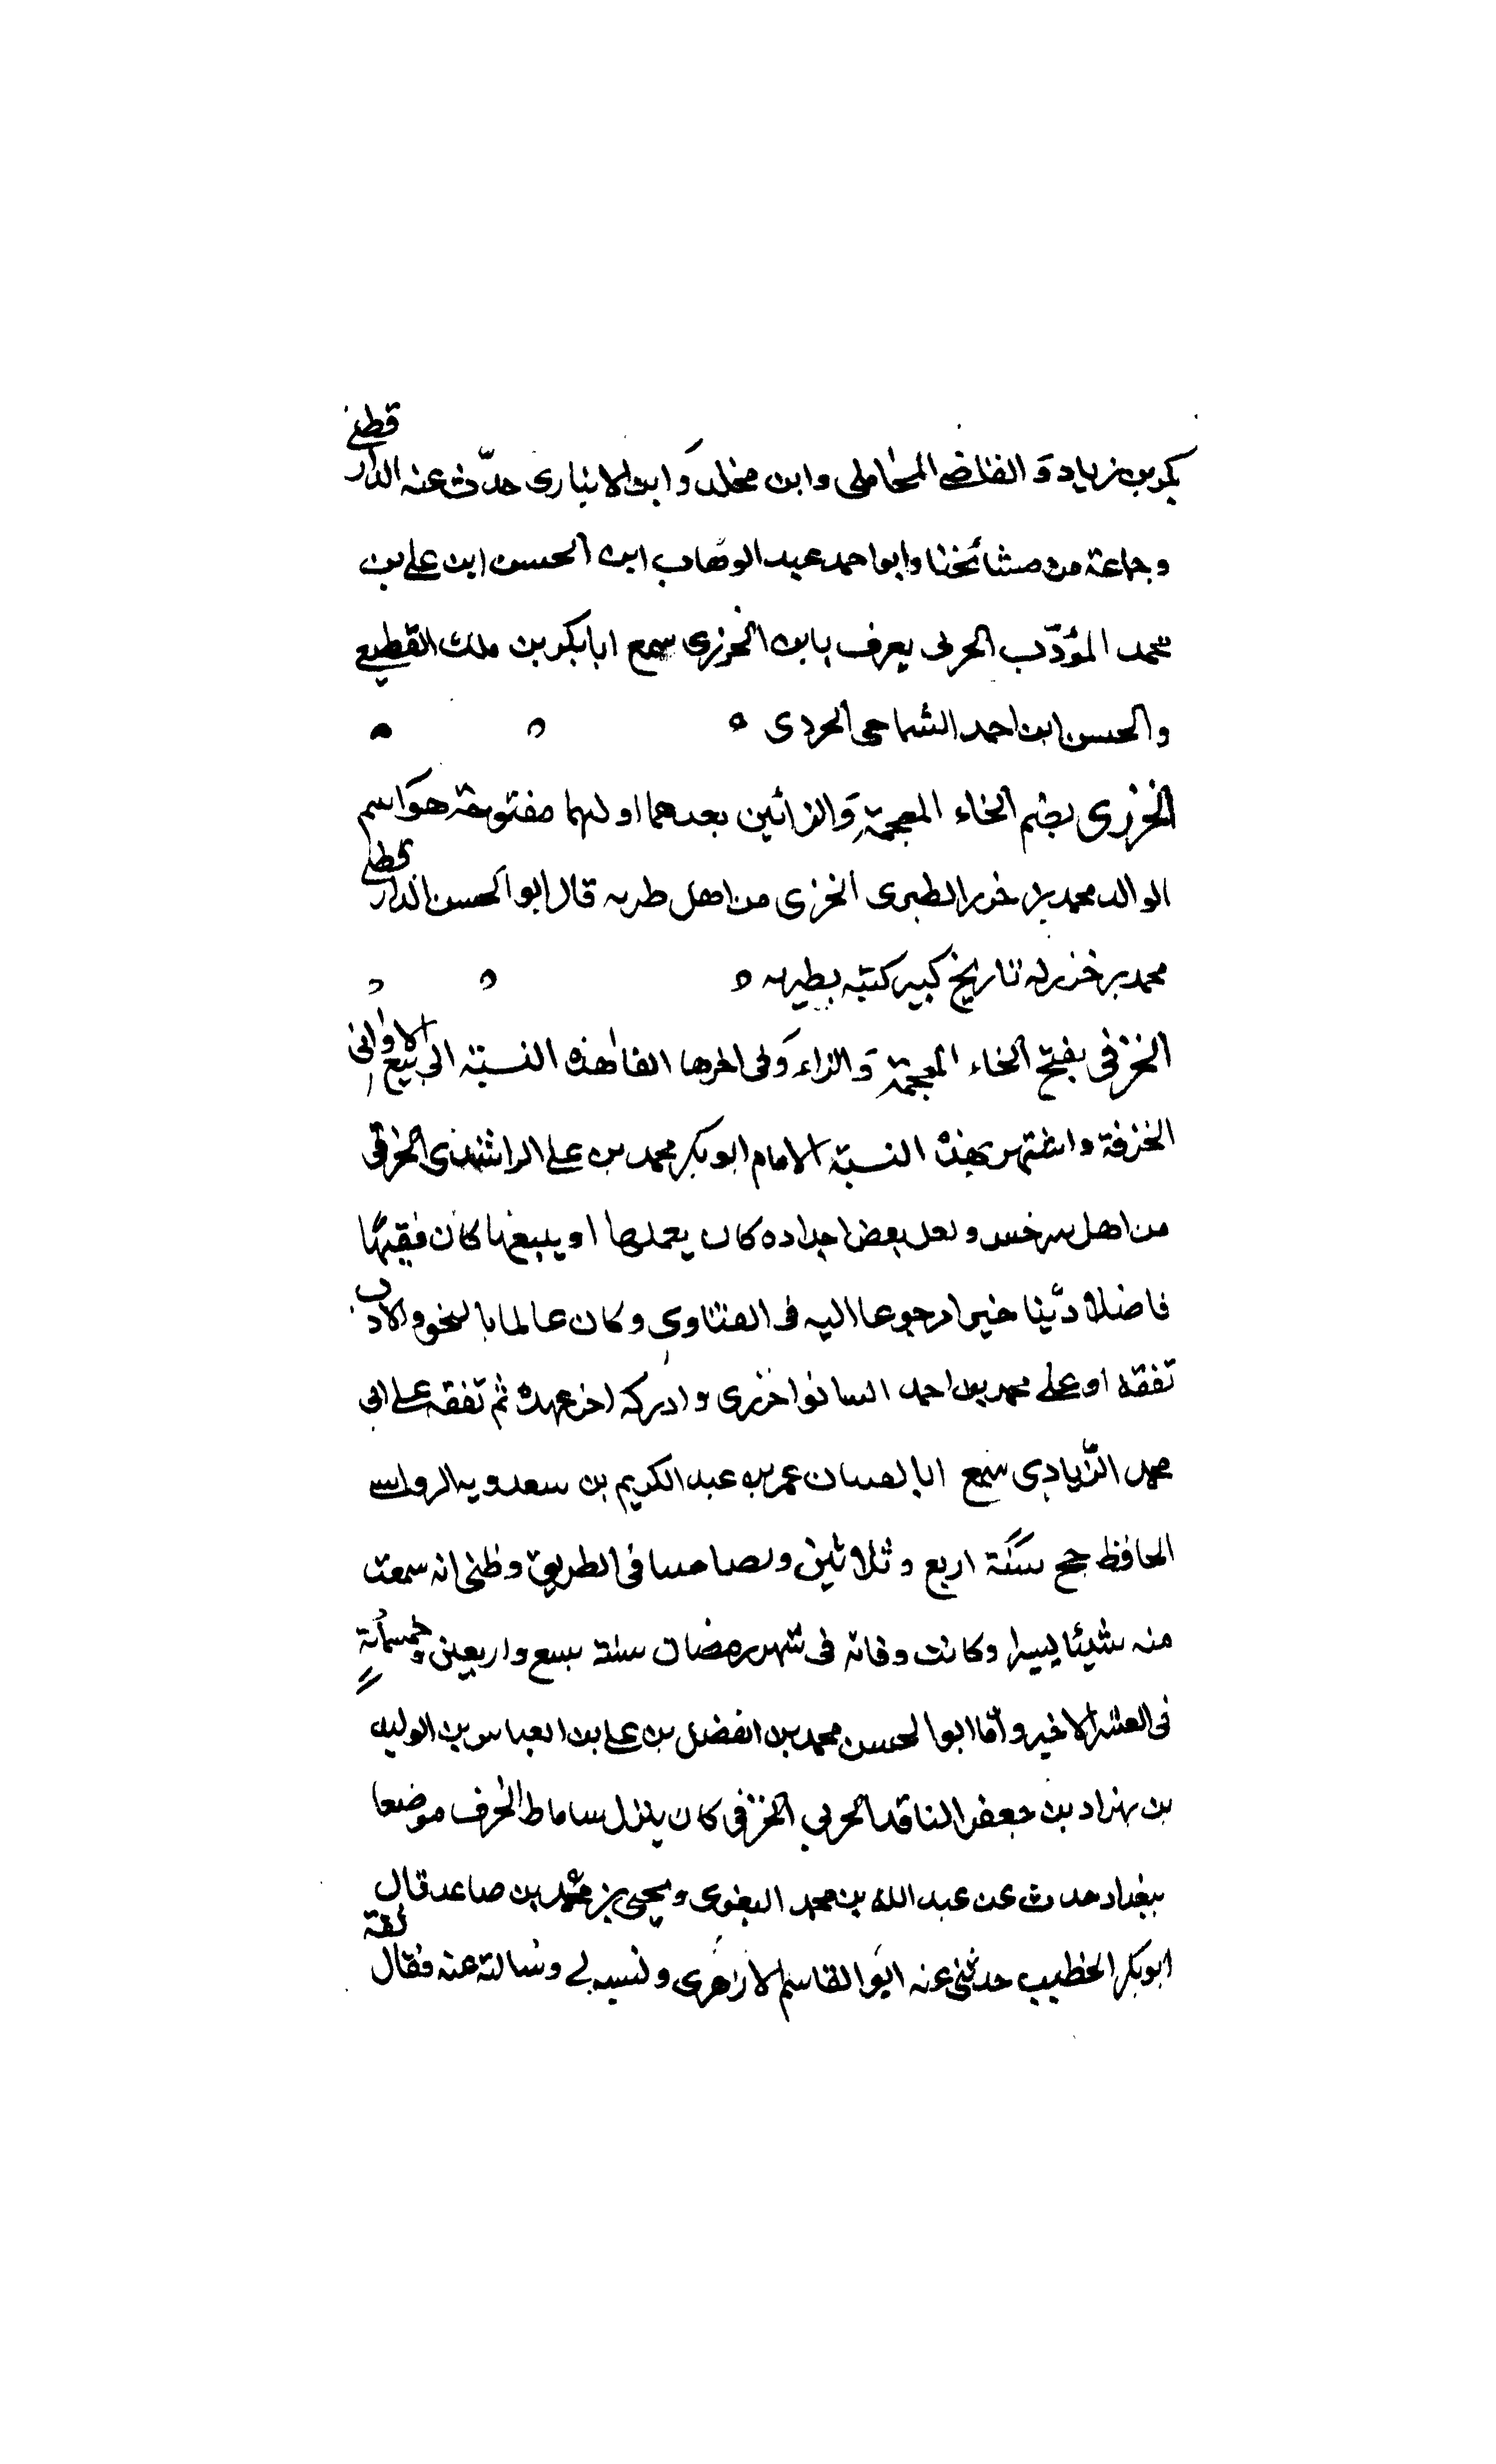 بكر بن زياد وَ القاضى المحاملى وابن مخلد وَ ابن الانبارى حدّث عنه الدارقطنى
وجماعة من مشائخنا وابو احمد عبد الوهاب ابن الحسن ابن على بن
محمد المؤدّب الحربى يعرف بابن الخزرى سمع ابا بكر بن ملك القطيعى
والحسن ابن احمد الشماحى الحردى
الخزرى بضم الخاء المعجمة وَالزائين بعدهما اولهما مفتوحة هوَ اسم
الوالد محمد بن خزر الطبرى الخزرى من اهل طبريه قال ابو الحسن الدارقطنى
محمد بن خزر له تاريخ كبير كتبه بطبريه
الخزفى بفتح الخاء المعجمة وَ الزاء وَفى اخرها الفا هذه النسبة الى بيع الاوانى
الخزفة واشتهر بهذه النسبة الامام ابو بكر محمد بن على الراشدى الخزفى
من اهل سرخس ولعل بعض اجداده كان يعملها او يبيعها كان فقيهًا
فاضلا ديّنا خيرا مرجوعا اليه فى الفتاوى وكان عالما بالنحو والادب
تفقه اوعلى محمد بن احمد وادركه اخر عهده ثم تفقه على ابى
محمد الزّيادى سمع ابا عمر بن عبد الكريم بن سعدويه الرواسى
الحافظ حج سنة اربع وثلاثين فى الطريق وظنى انه سمعت
منه شيئا يسيرا وكانت وفاته فى شهر رمضان سنة سبع واربعين وخمسمائة
فى العشر الاخير وأما ابو الحسن محمد بن الفضل بن على بن العباس بن الوليد
بن بهزاد بن جعفر الناقد الحربى الخزفى كان ينزل ساماط الخزف موضعا
ببغداد حدث عن عبد الله بن محمد البغوى ويحيى بن محمد بن صاعد قال
ابو بكر الخطيب حدثنى عنه ابو القاسم الازهرى ونسبه لى وسالته عنه فقال ثقة